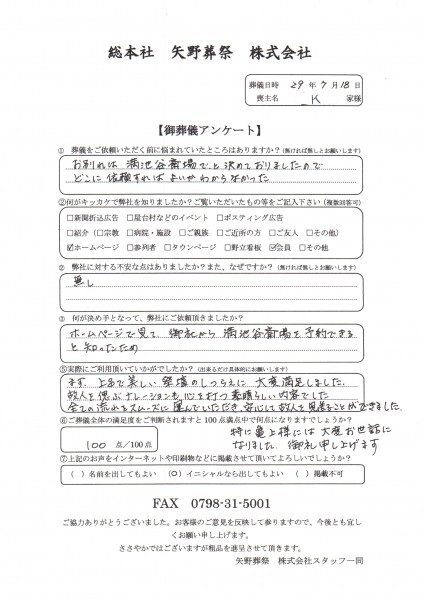 総本社 矢野葬祭 株式会社
葬儀日時 29年7月18日
喪主名 K 家様
【御葬儀アンケート】
① 葬儀をご依頼いただく前に悩まれていたところはありますか？(無ければ無しとお願いします)
お別れは 満池谷斎場でと決めておりましたので
どこに依頼すればよいかわからなかった
②何がキッカケで弊社を知りましたか？ご覧いただいたもの等をご記入下さい（複数回答可）
□新聞折込広告 □屋台村などのイベント □ポスティング広告
□紹介（□宗教 □病院・施設 □ご親族 □ご近所の方 □ご友人 □その他）
☑ホームページ □参列者 □タウンページ □野立看板 ☑会員 □その他
② 弊社に対する不安な点はありましたか？また、なぜですか？(無ければ無しとお願いします)
無し
③ 何が決め手となって、弊社にご依頼頂きましたか？
ホームページで見て 御社から 満池谷斎場を予約できる
と知ったため
⑤実際にご利用頂いていかがでしたか？（出来るだけ具体的にお願いします）
まず、上品で美しい祭壇のしつらえに 大変満足しました。
故人を偲ぶナレーションも 心を打つ素晴らしい内容でした
全ての流れをスムーズに運んでいただき、安心して故人を見送ることができました。
⑥ご葬儀全体の満足度をご判断されますと100点満点中で何点になりますでしょうか？
100 点/100点
特に亀上様には 大変お世話に
なりました。御礼申し上げます
⑦上記のお声をインターネットや印刷物などに掲載させて頂いてよろしいでしょうか？
（ ）名前を出してもよい （O）イニシャルなら出してもよい （ ）掲載不可
FAX 0798-31-5001
ご協力ありがとうございました。お客様のご意見を反映して参りますので、今後とも宜し
くお願い申し上げます。
ささやかではございますが粗品を進呈させて頂きます。
矢野葬祭 株式会社スタッフ一同